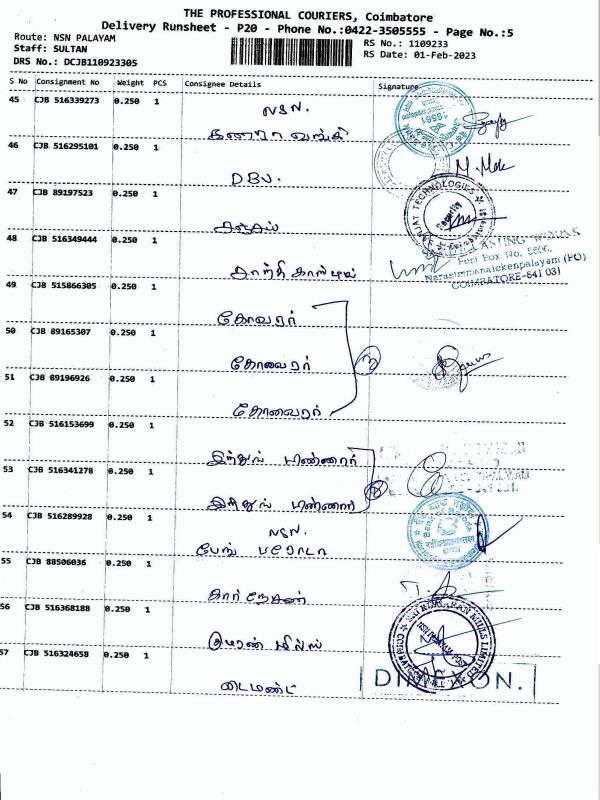 THE PROFESSIONAL COURIERS, Coimbatore
Delivery Runsheet - P20 - Phone No.:0422-3505555 - Page No.:5
Route: NSN PALAYAM
RS No.: 1109233
Staff: SULTAN
RS Date: 01-Feb-2023
DRS No.: DCJB110923305
S No Consignment No Weight PCS Consignee Details Signature
45 CJB 516339273 0.250 1
NSN.
கனரா வங்கி
46 CJB 516295101 0.250 1
DBJ.
47 CJB 89197523 0.250 1
48 CJB 516349444 0.250 1
CASTING
Post Box No.
Narasimmanaickenpalayam (PO)
COIMBATORE-641 031
49 CJB 515866305 0.250 1
கோவரர்
50 CJB 89165307 0.250 1
கோவைரர்
51 CJB 89196926 0.250 1
கோவைரர்
52 CJB 516153699 0.250 1
53 CJB 516341278 0.250 1
54 CJB 516289928 0.250 1
NSN.
பேங் பரோடா
55 CJB 88506036 0.250 1
56 CJB 516368188 0.250 1
57 CJB 516324658 0.250 1
டைமண்ட்
DIMEXON.